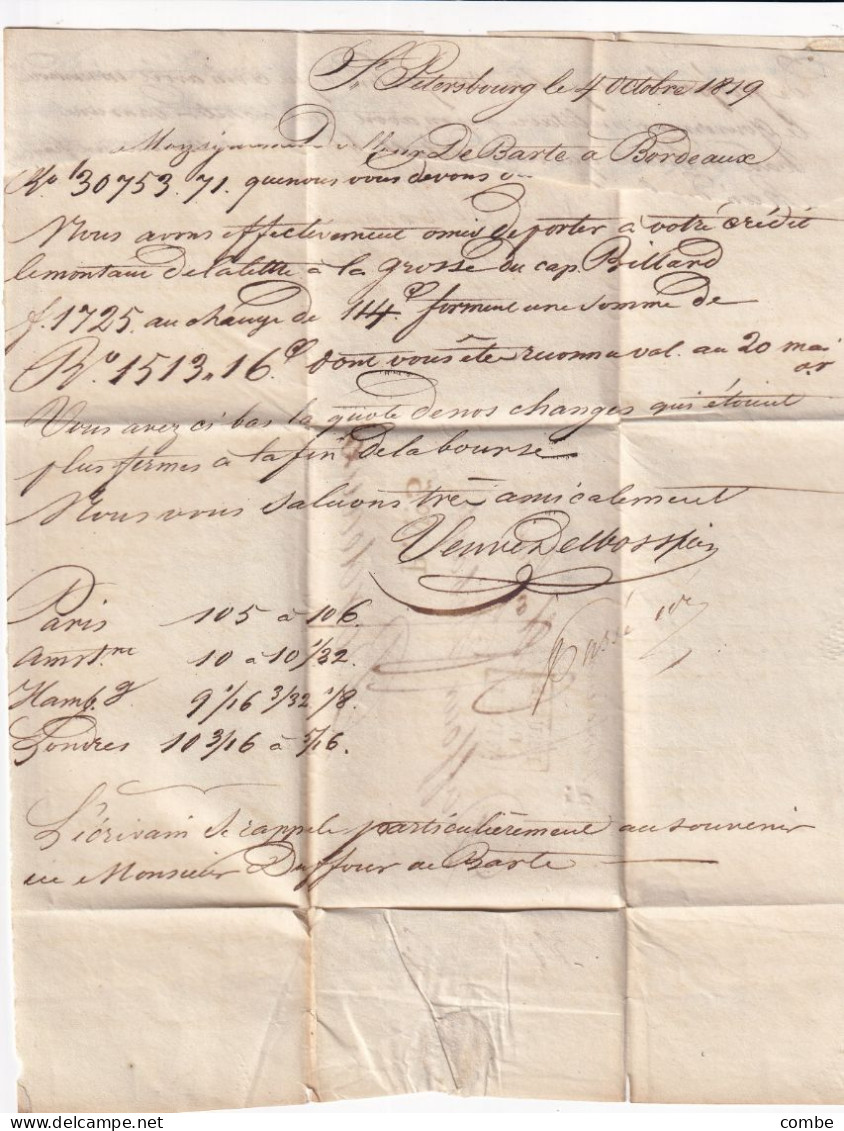 St. Petersbourg le 4 Octobre 1819
De Barte a Bordeaux
Ro. 30753.71. que nous vous devons
Nous avons effectivement omis de porter à votre crédit
le montant de la lettre à la grosse du cap. Billard
f. 1725. au change de 114 forment une somme de
Ro. 1513.16 dont vous êtes reconnu val. au 20 mai
Vous avez ci bas la quote de nos changes qui étoient
plus fermes à la fin de la bourse
Nous vous saluons très amicalement
Paris 105 a 106.
Amstm 10 a 10 1/32.
Hambg 9 1/16 3/32 1/8.
Londres 10 3/16 a 5/16.
L'écrivain se rappele particulièrement au souvenir
de Monsieur Duffour de Barte
combe